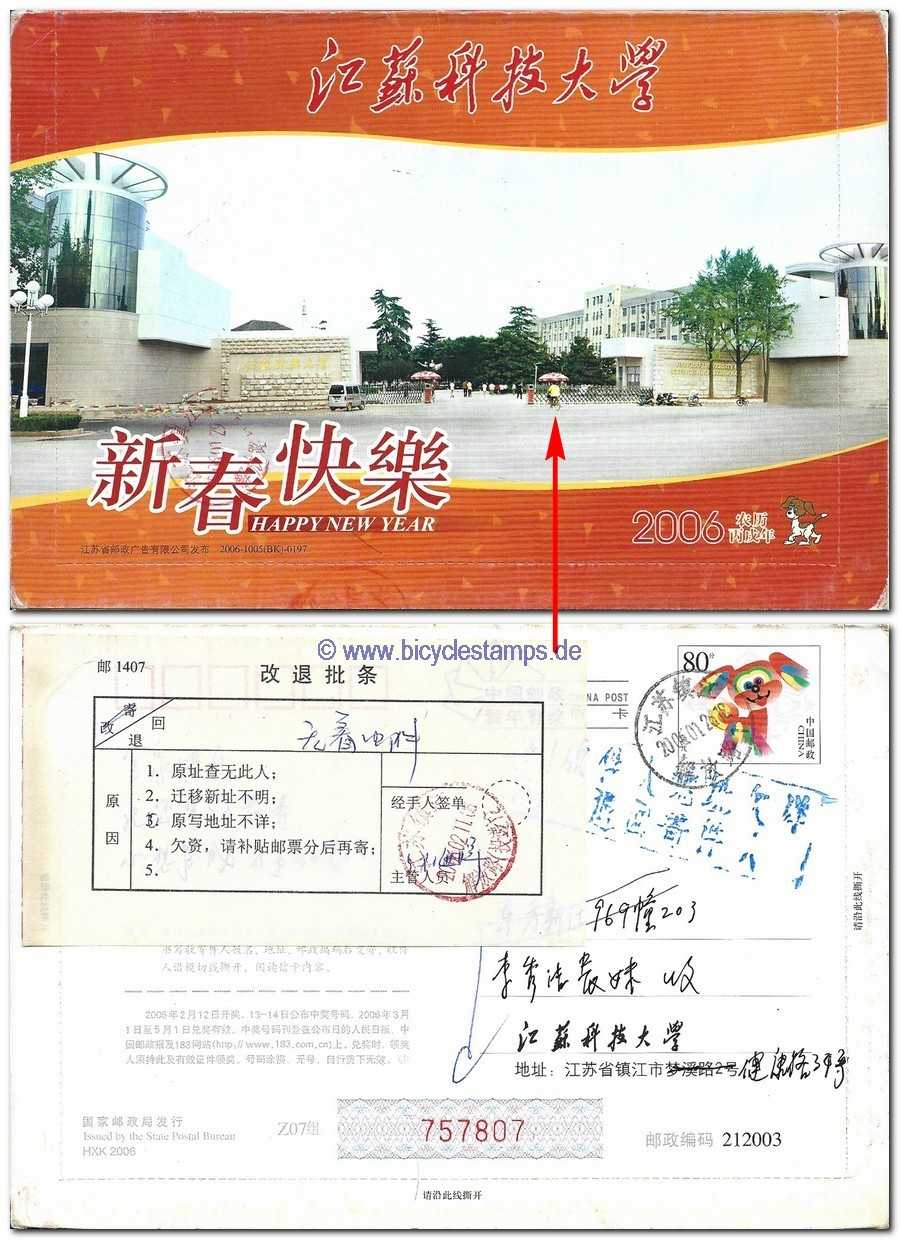 江蘇科技大學
江蘇科技大学
新春快樂
HAPPY NEW YEAR
2006 农历
丙戌年
江苏省邮政广告有限公司发布 2006-1005(BK)-0197
© www.bicyclestamps.de
邮 1407
改退批条
改 寄
退 回
原因
1. 原址查无此人；
2. 迁移新址不明；
3. 原写地址不详；
4. 欠资，请补贴邮票分后再寄；
5.
经手人签单
主管人员
80分
中国邮政
CHINA
NA POST
卡
969幢203
收
江蘇科技大學
地址：江苏省镇江市梦溪路2号
人沿模切线撕开，阅读信卡内容。
2006年2月12日开奖，13-14日公布中奖号码，2006年3月
1日至5月1日兑奖有效，中奖号码刊登在公布日的人民日报、中
国邮政报及183网站(http://www.183.com.cn)上。兑奖时，领奖
人须持此及有效证件领奖，号码涂损、无号、自行拆下无效。
国家邮政局发行
Issued by the State Postal Bureau
HXK 2006
Z07组
757807
邮政编码 212003
请沿此线撕开
请沿此线撕开